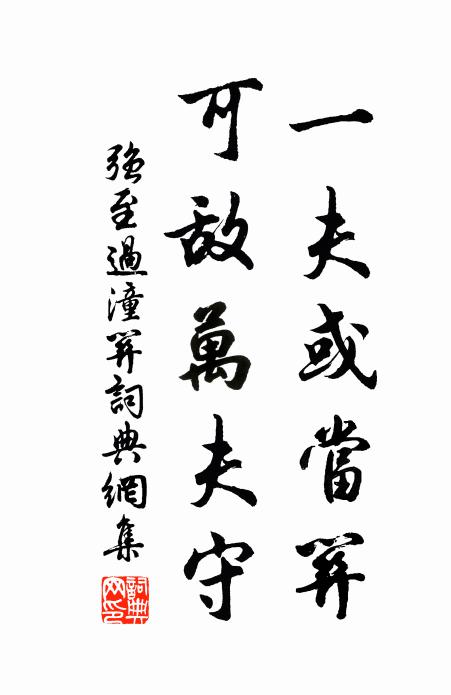 一夫或當關
可敵萬夫守
強至過潼關詞典網集
詞典網印